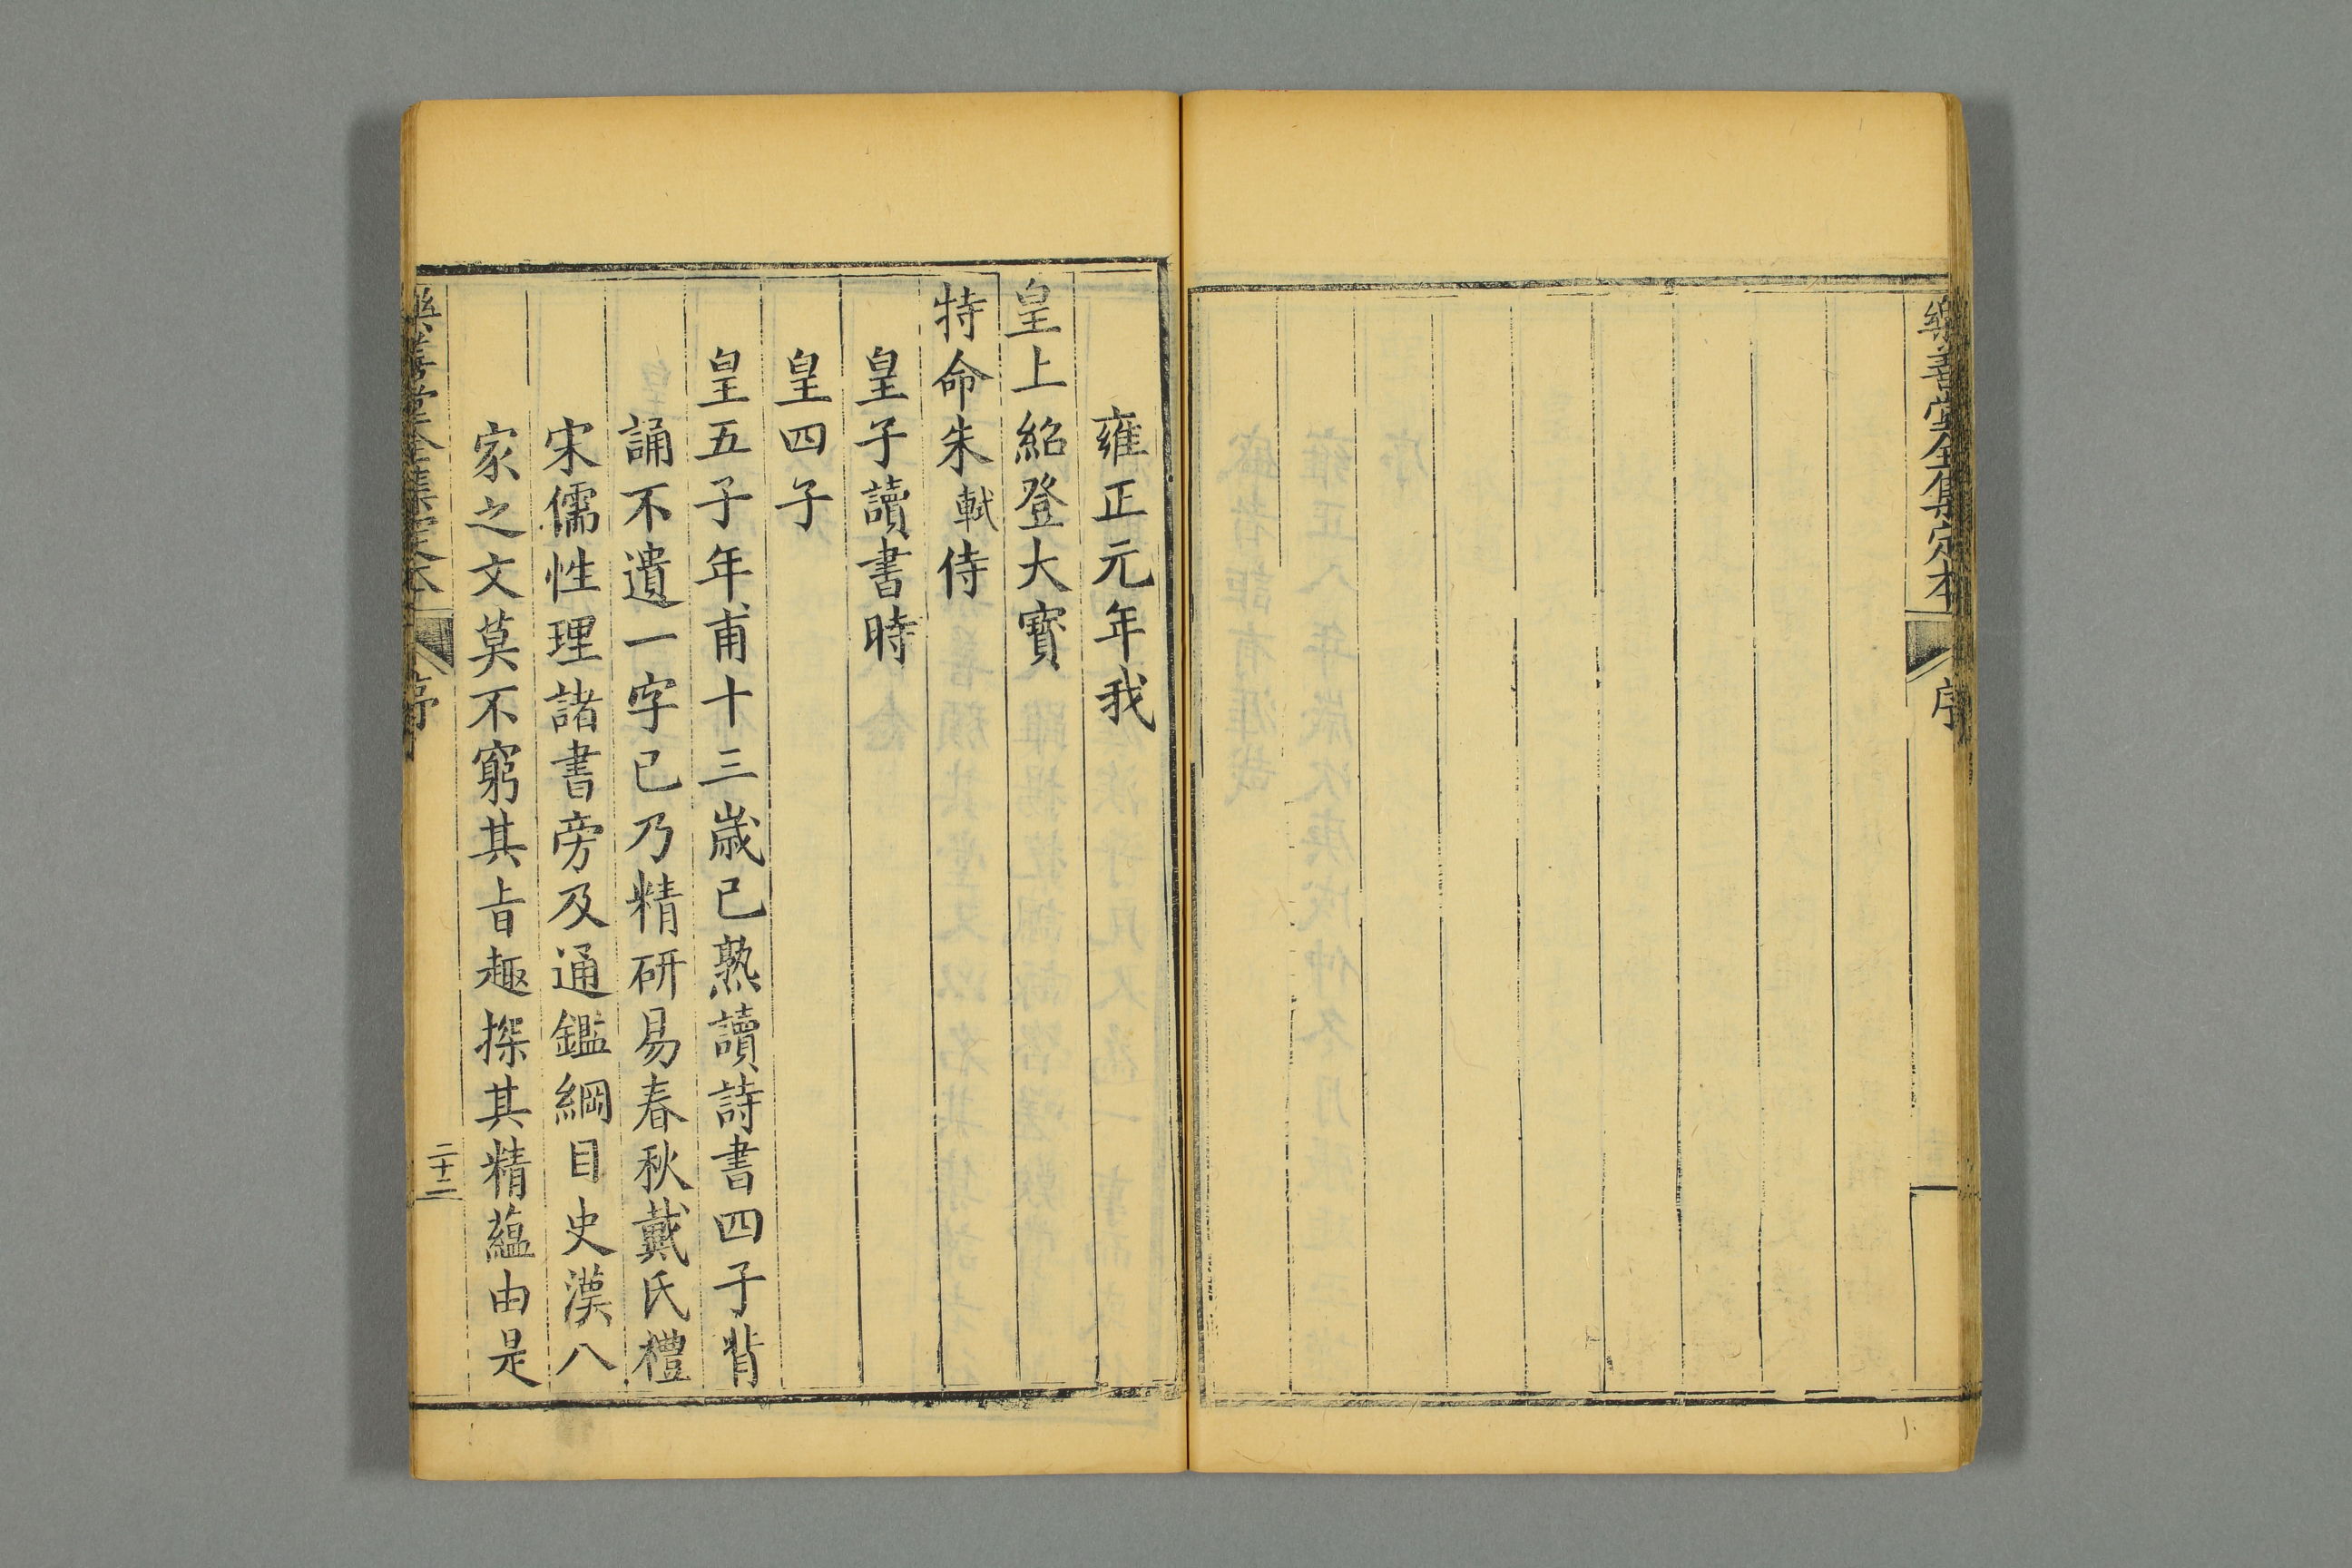 樂善堂全集定本
序
雍正元年我
皇上紹登大寶
特命朱軾侍
皇子讀書時
皇四子
皇五子年甫十三歲已熟讀詩書四子背
誦不遺一字已乃精研易春秋戴氏禮
宋儒性理諸書旁及通鑑綱目史漢八
家之文莫不窮其旨趣探其精蘊由是
樂善堂全集定本
序
二十二